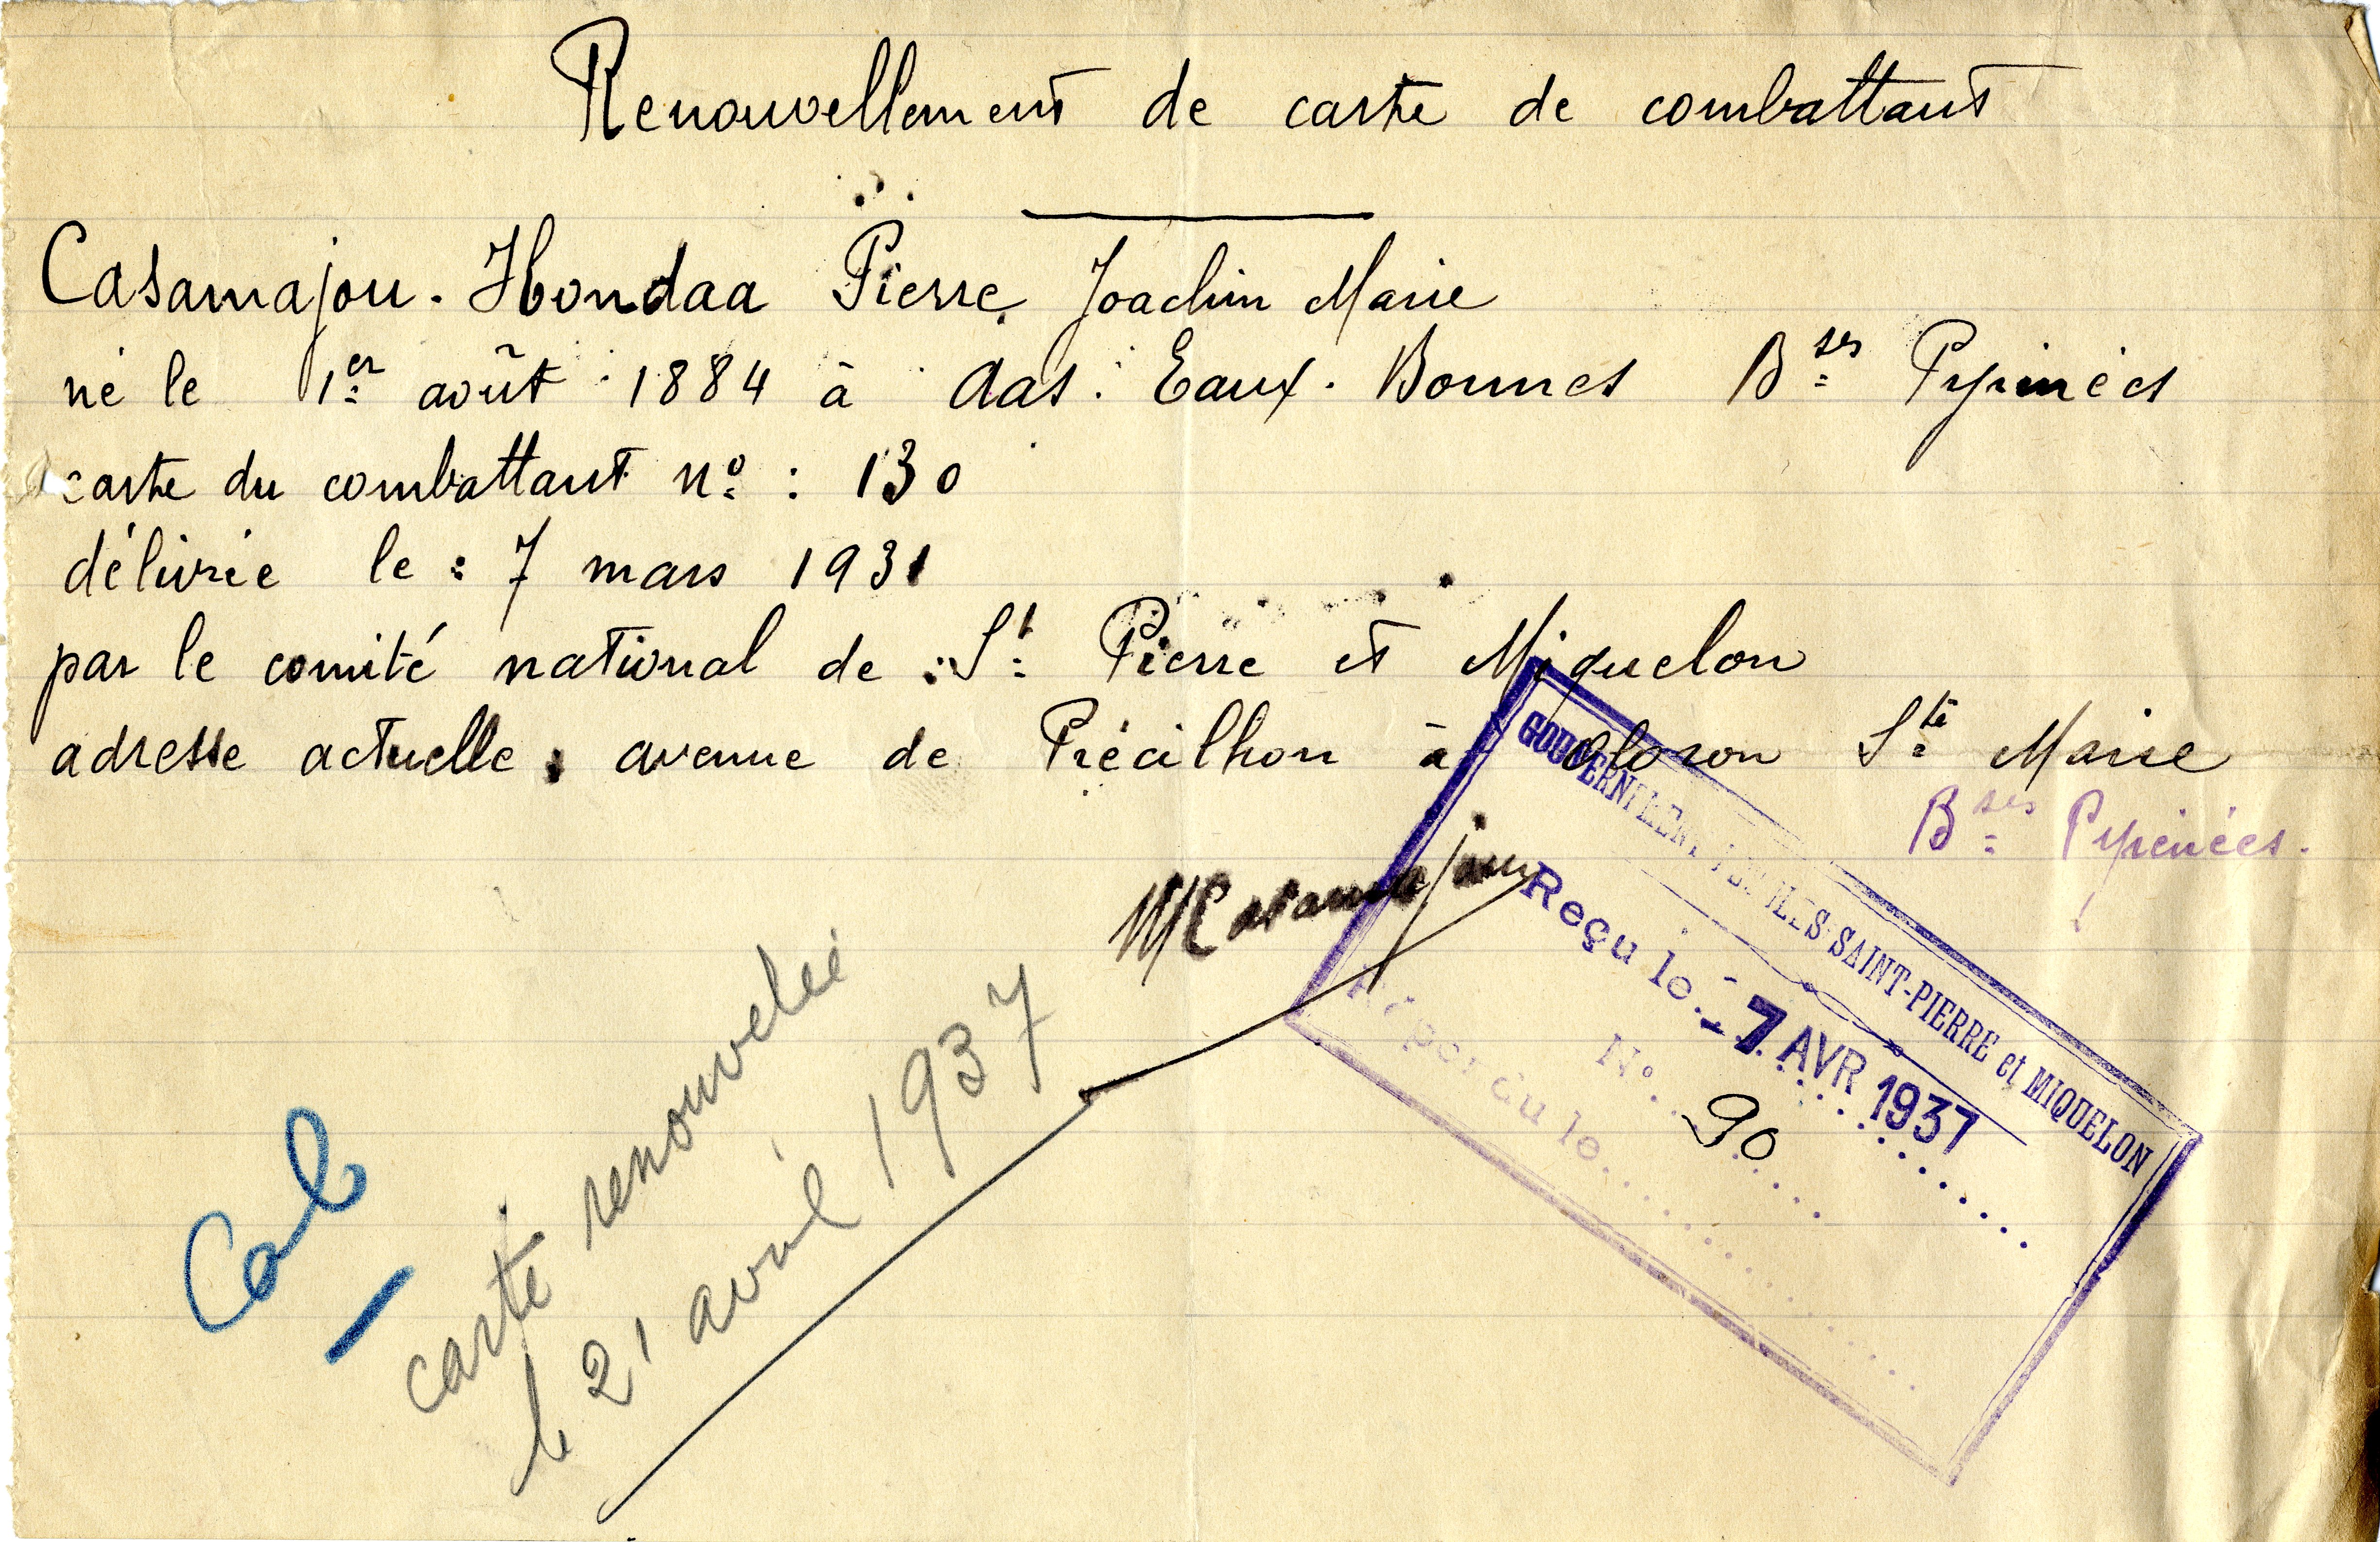 Renouvellement de carte de combattant
Casamajou-Hondaa Pierre Joachim Marie
né le 1er août 1884 à Aas. Eaux-Bonnes Bses Pyrénées
carte du combattant n° : 130
délivrée le : 7 mars 1931
par le comité national de : St Pierre et Miquelon
adresse actuelle : avenue de Précilhon à Oloron Ste Marie
Bses Pyrénées.
Casamajou
GOUVERNEMENT DES ILES SAINT-PIERRE et MIQUELON
Reçu le - 7 AVR 1937
N° 90
Répondu le
Cab
carte renouvelée
le 21 avril 1937